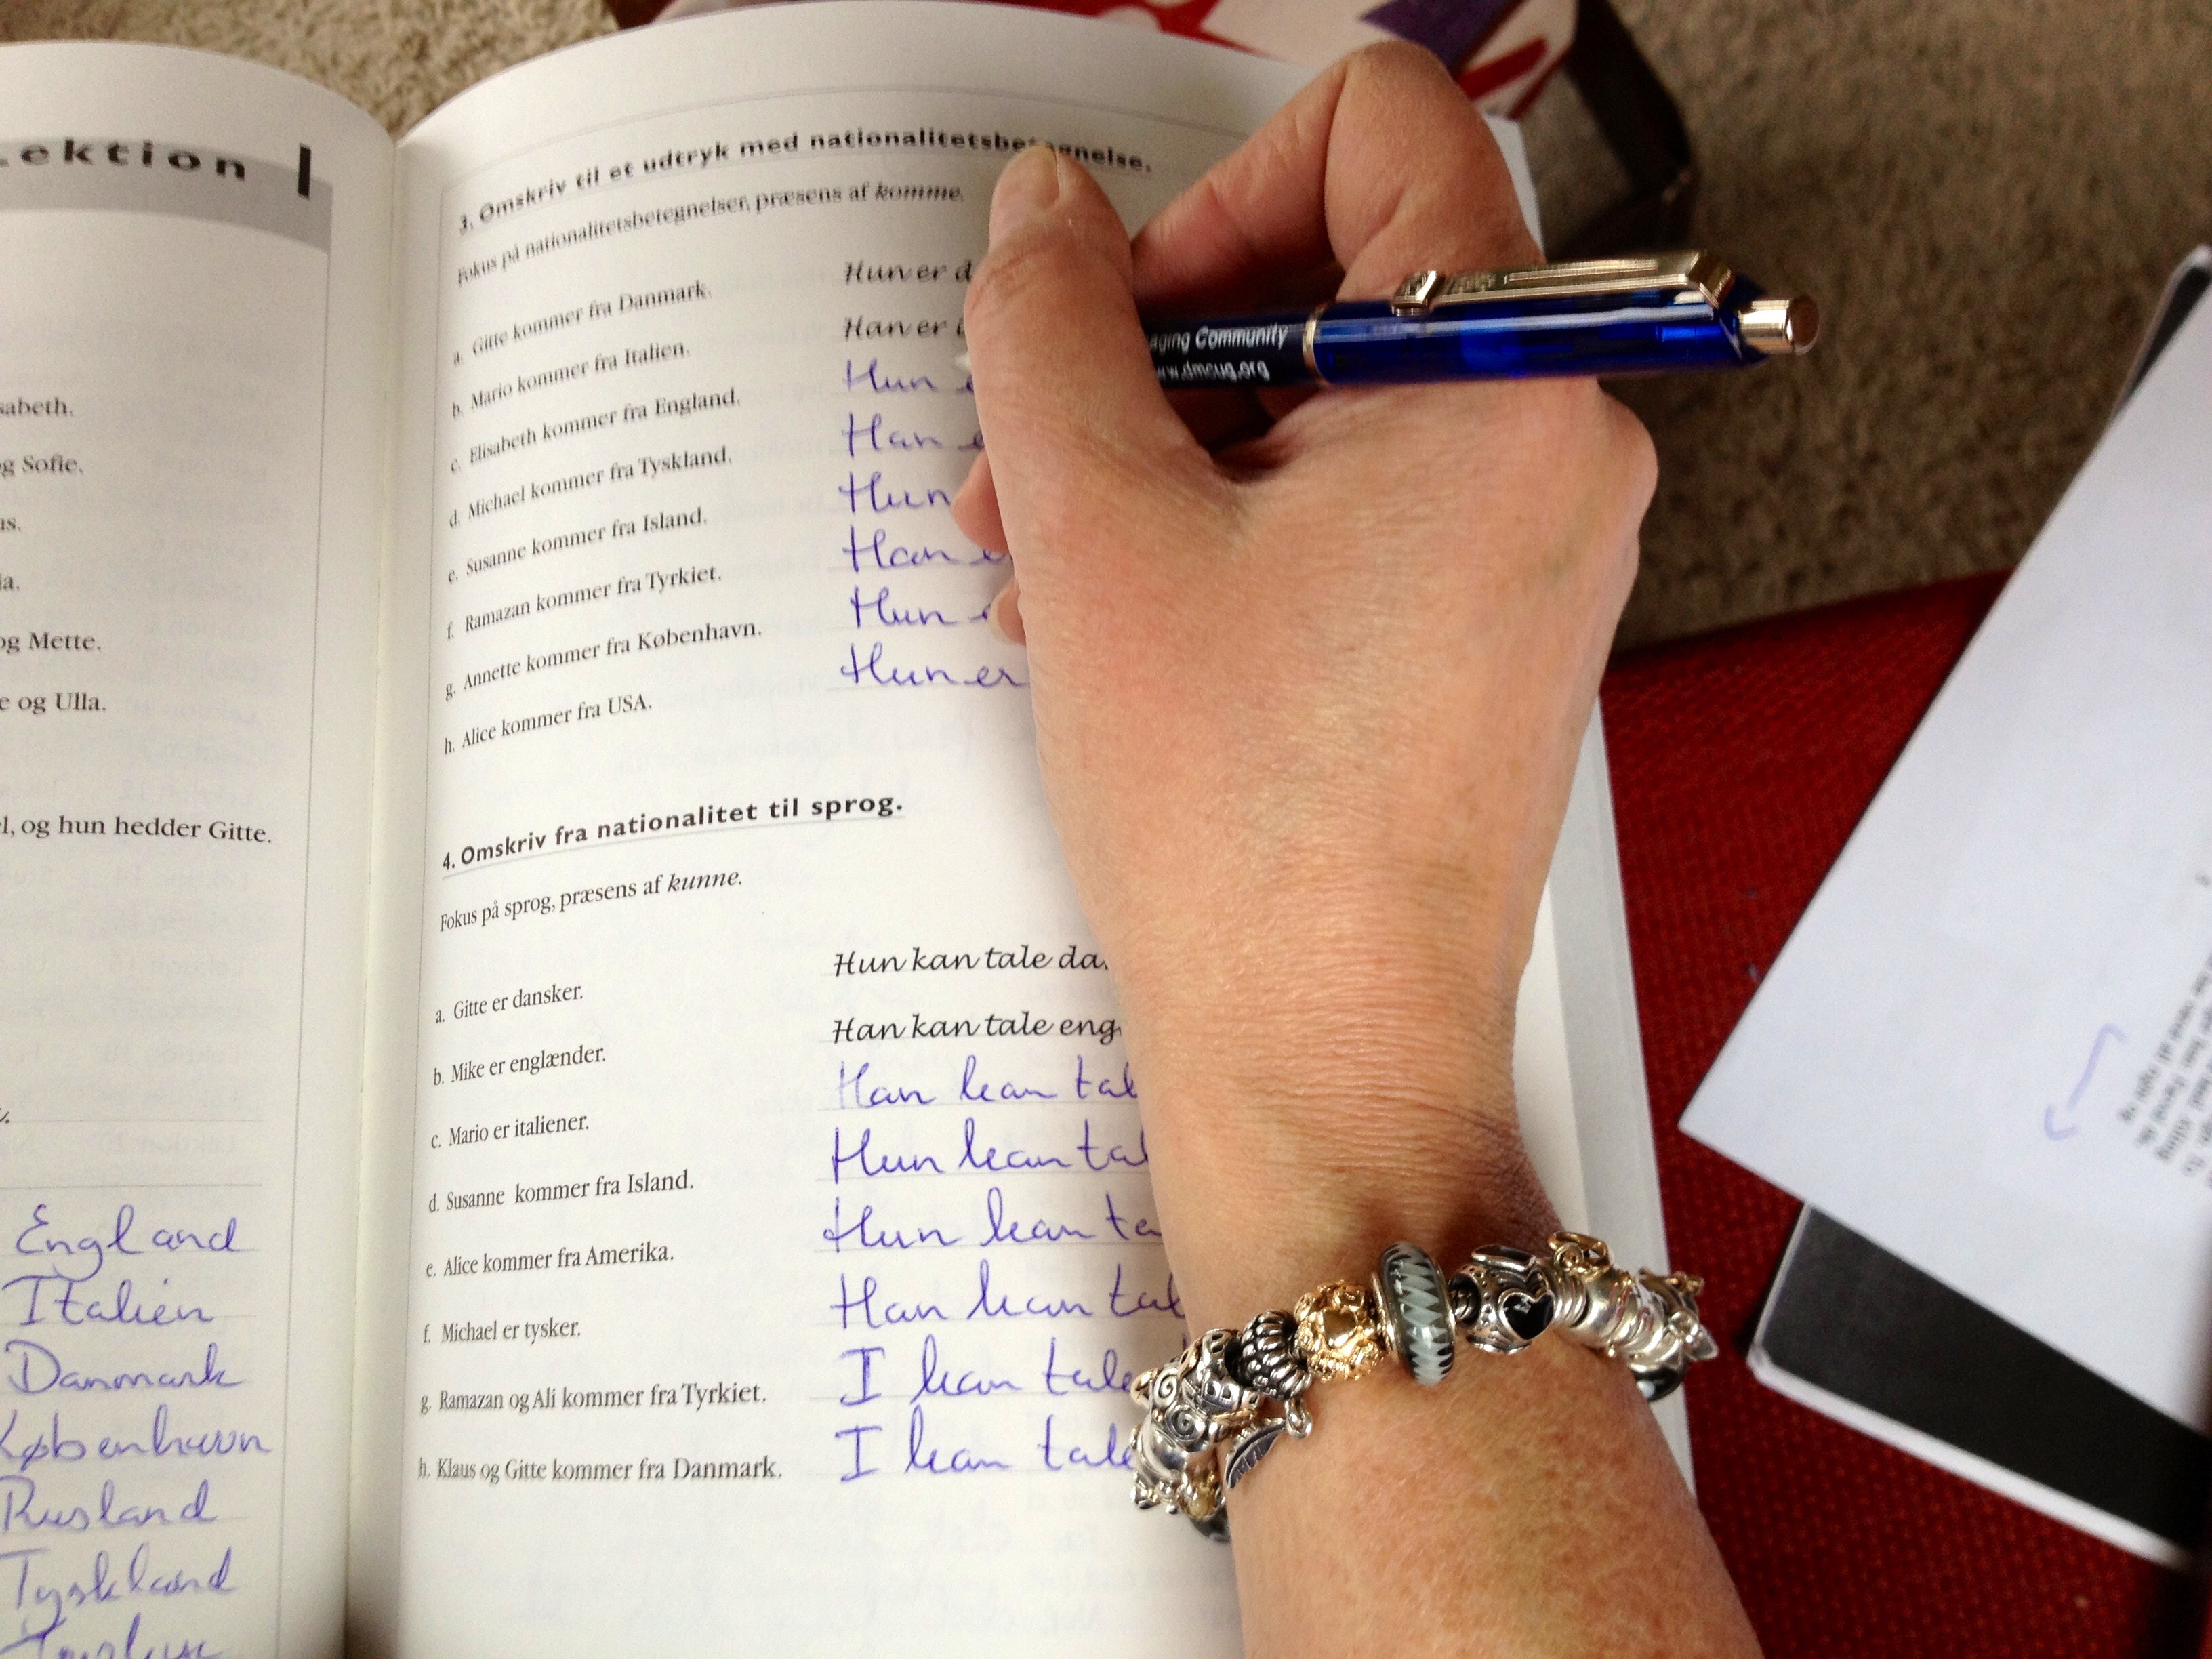 Lektion 1
sabeth.
og Sofie.
us.
la.
og Mette.
e og Ulla.
l, og hun hedder Gitte.
England
Italien
Danmark
København
Rusland
Tyskland
3. Omskriv til et udtryk med nationalitetsbetegnelse.
Fokus på nationalitetsbetegnelser, præsens af komme.
a. Gitte kommer fra Danmark. Hun er d
b. Mario kommer fra Italien. Han er i
c. Elisabeth kommer fra England. Hun e
d. Michael kommer fra Tyskland. Han e
e. Susanne kommer fra Island. Hun
f. Ramazan kommer fra Tyrkiet. Han e
g. Annette kommer fra København. Hun e
h. Alice kommer fra USA. Hun er
4. Omskriv fra nationalitet til sprog.
Fokus på sprog, præsens af kunne.
a. Gitte er dansker. Hun kan tale da
b. Mike er englænder. Han kan tale eng
c. Mario er italiener. Han kan tal
d. Susanne kommer fra Island. Hun kan tal
e. Alice kommer fra Amerika. Hun kan ta
f. Michael er tysker. Han kan tal
g. Ramazan og Ali kommer fra Tyrkiet. I kan tale
h. Klaus og Gitte kommer fra Danmark. I kan tale
aging Community
www.dmcug.org